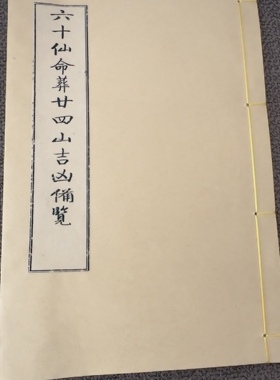 六十仙命葬廿四山吉凶備覽